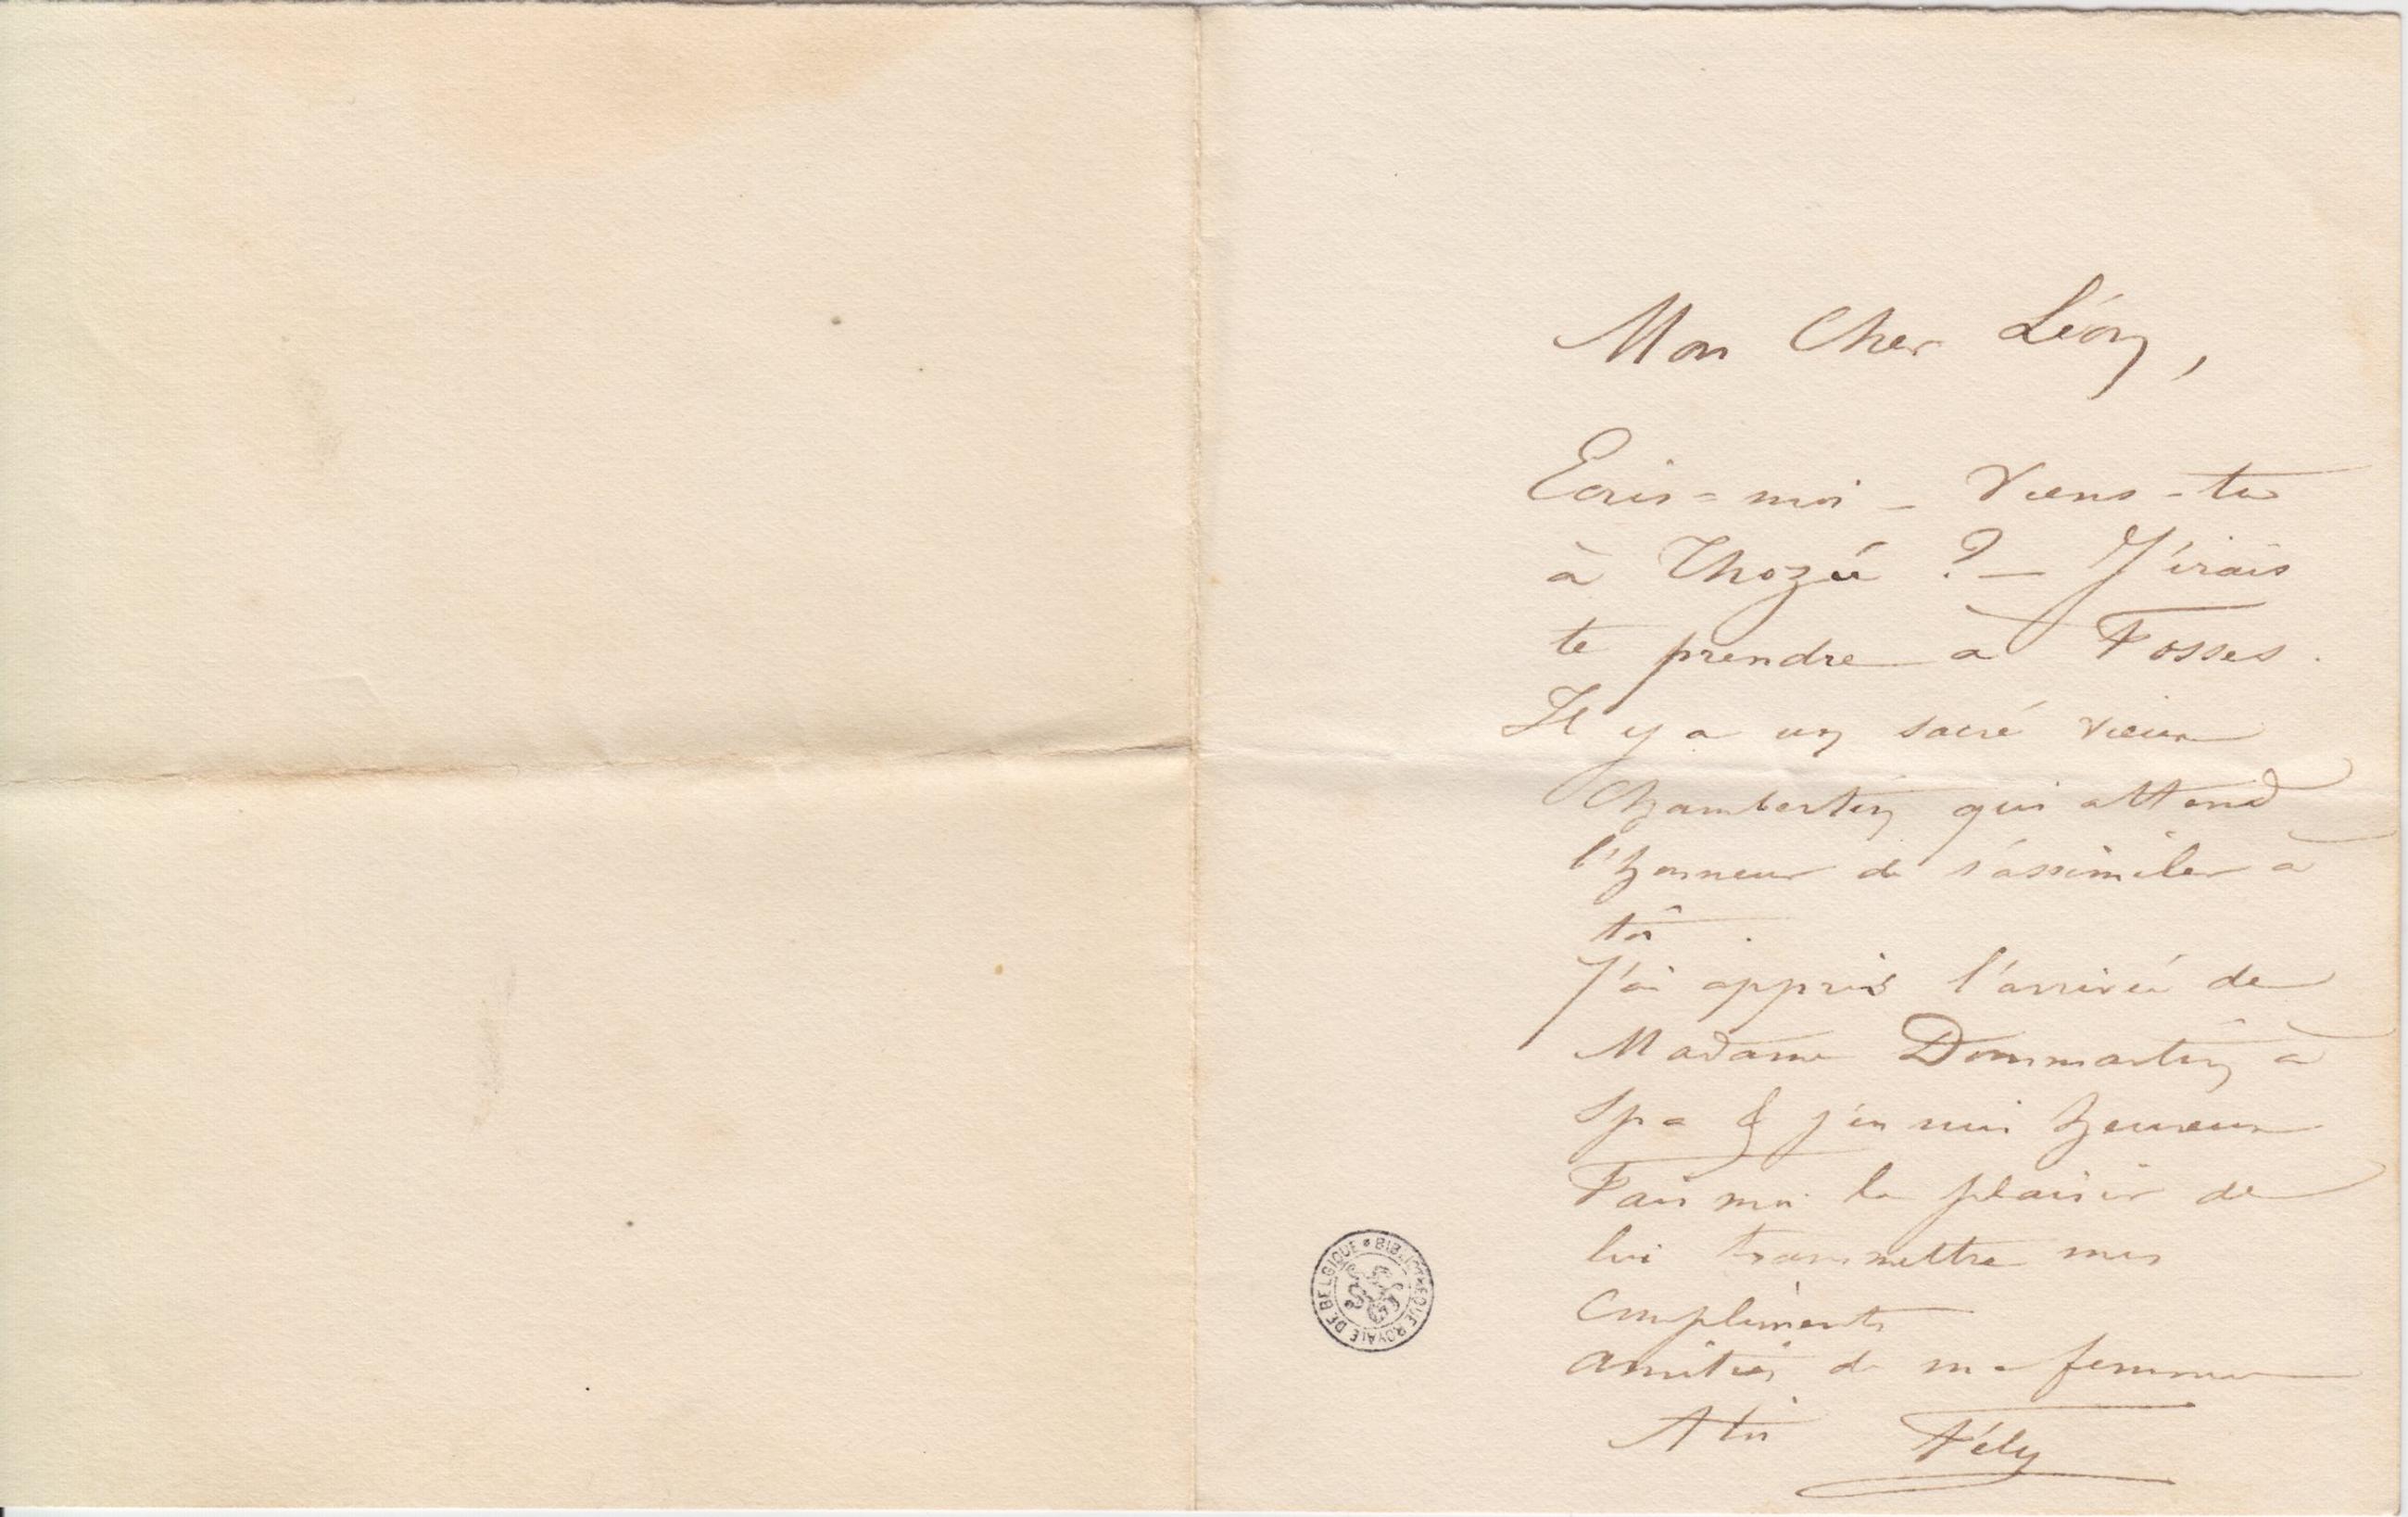 Mon Cher Léon,
Ecris=moi _ Viens-tu
à Thozée ? — J'irais
te prendre à Fosses.
Il y a un sacré vieux
Chambertin qui attend
l'honneur de s'assimiler à
toi.
J'ai appris l'arrivée de
Madame Dommartin à
Spa & j'en suis heureux
Fais moi le plaisir de
lui transmettre mes
compliments
amitiés de ma femme
A toi Fély
BIBLIOTHEQUE ROYALE DE BELGIQUE